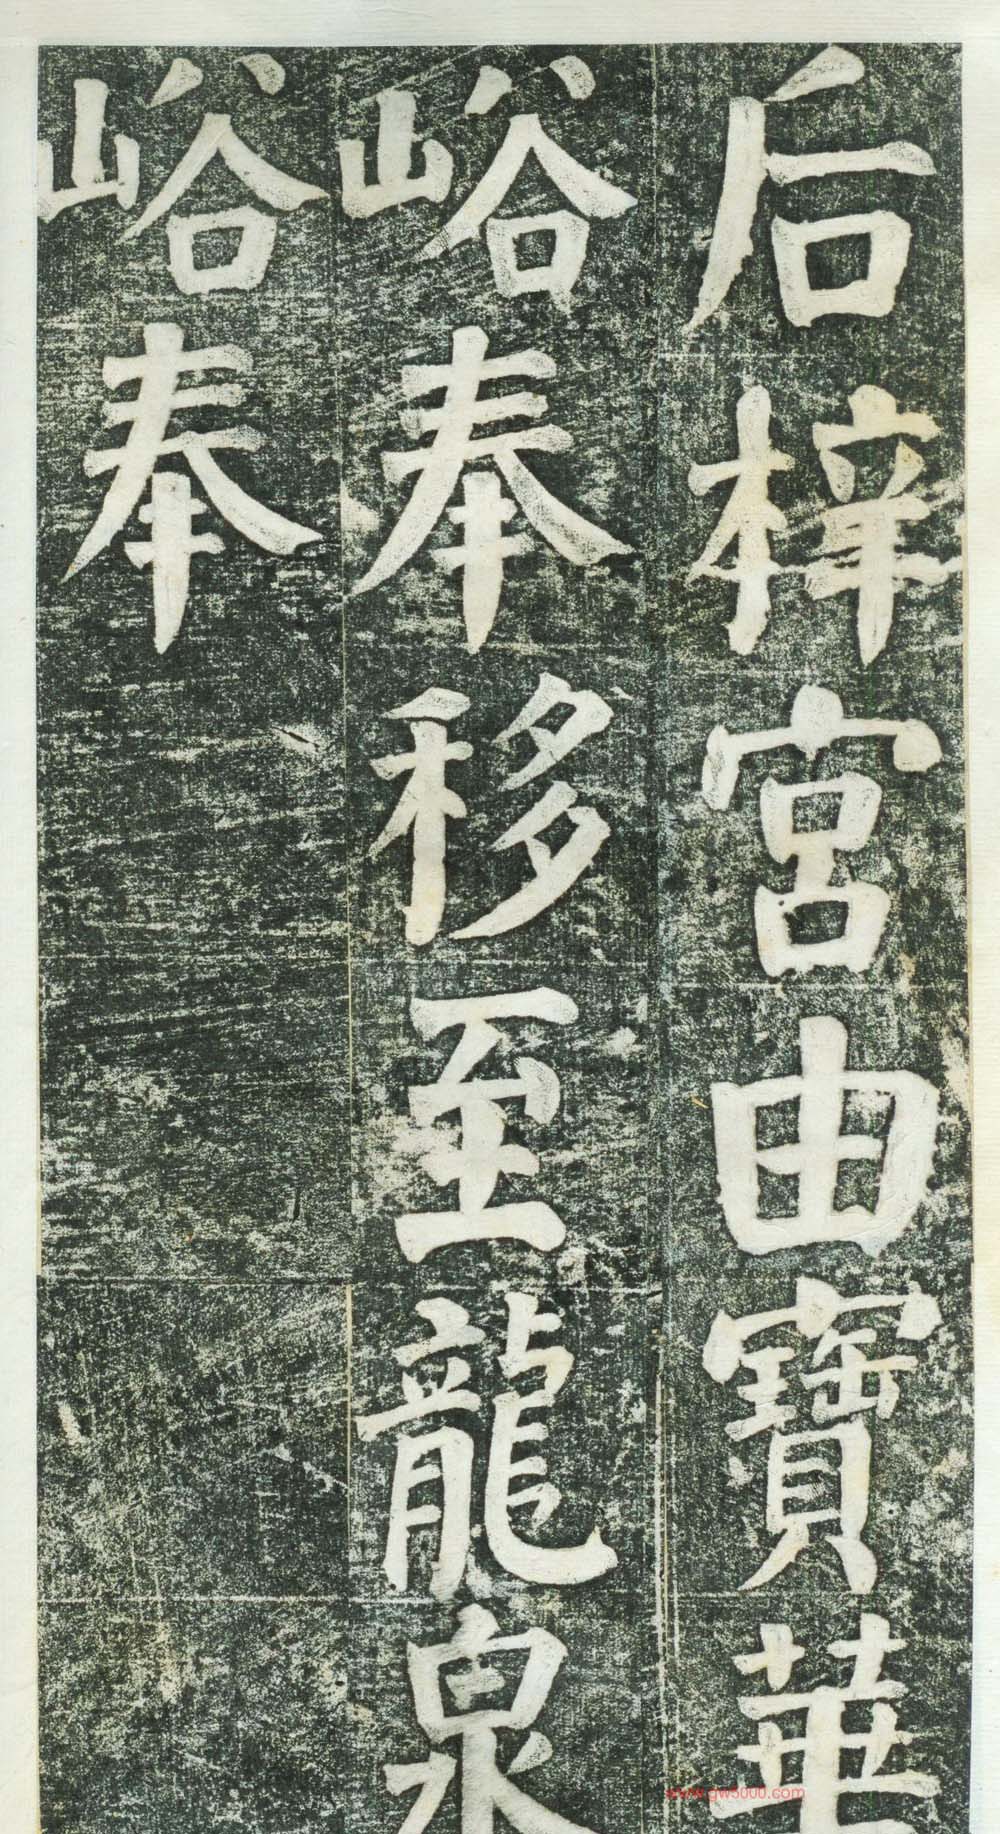 后梓宮由寶華
峪奉移至龍泉
峪奉
www.gw5000.com